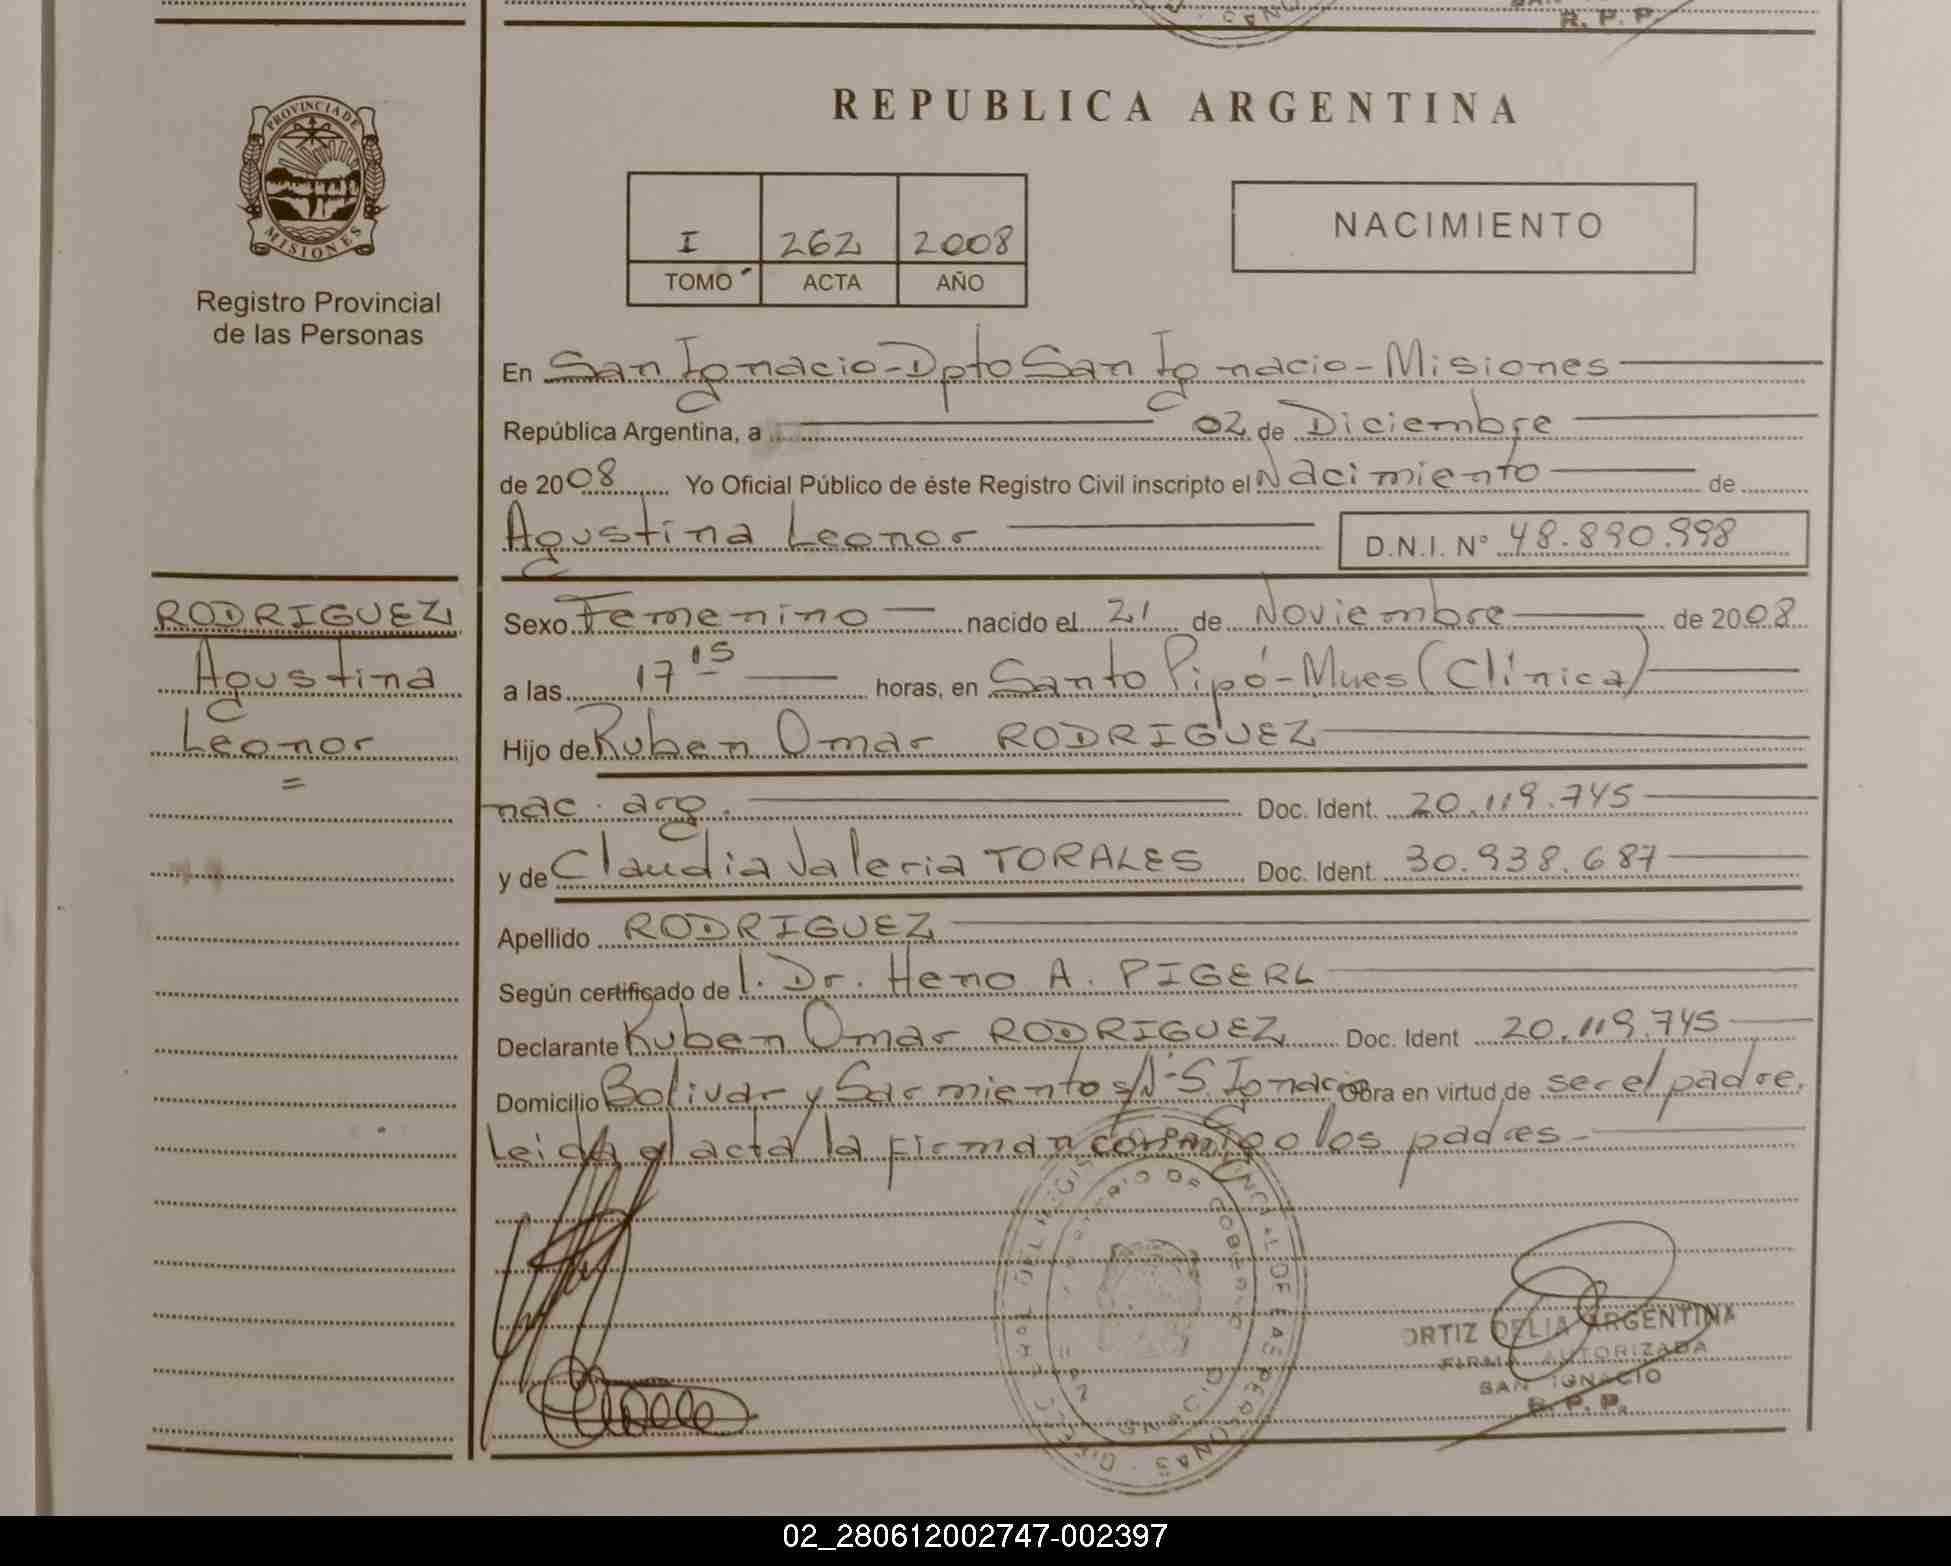 R. P. P.
PROVINCIA DE
MISIONES
Registro Provincial
de las Personas
REPUBLICA ARGENTINA
I 262 2008
TOMO ACTA AÑO
NACIMIENTO
En San Ignacio-Dpto San Ignacio-Misiones
República Argentina, a 02 de Diciembre
de 2008 Yo Oficial Público de éste Registro Civil inscripto el Nacimiento de
Agustina Leonor D.N.I. N° 48.890.998
RODRIGUEZ
Agustina
Leonor
=
Sexo Femenino nacido el 21 de Noviembre de 2008
a las 17 15 horas, en Santo Pipó-Mnes (Clínica)
Hijo de Ruben Omar RODRIGUEZ
nac. arg. Doc. Ident. 20.119.745
y de Claudia Valeria TORALES Doc. Ident. 30.938.687
Apellido RODRIGUEZ
Según certificado de l. Dr. Heno A. PIGERL
Declarante Ruben Omar RODRIGUEZ Doc. Ident 20.119.745
Domicilio Bolivar y Sarmiento s/N-S. Ignacio Obra en virtud de ser el padre.
Leida el acta la firman conmigo los padres-
ORTIZ DELIA ARGENTINA
FIRMA AUTORIZADA
SAN IGNACIO
R. P. P.
02_280612002747-002397